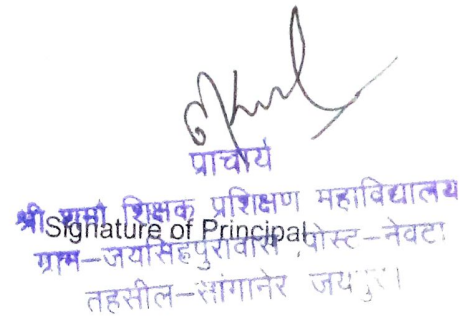 प्राचार्य
श्री शर्मा शिक्षक प्रशिक्षण महाविद्यालय
Signature of Principal
ग्राम-जयसिंहपुरावास पोस्ट-नेवटा
तहसील-सांगानेर जयपुर।